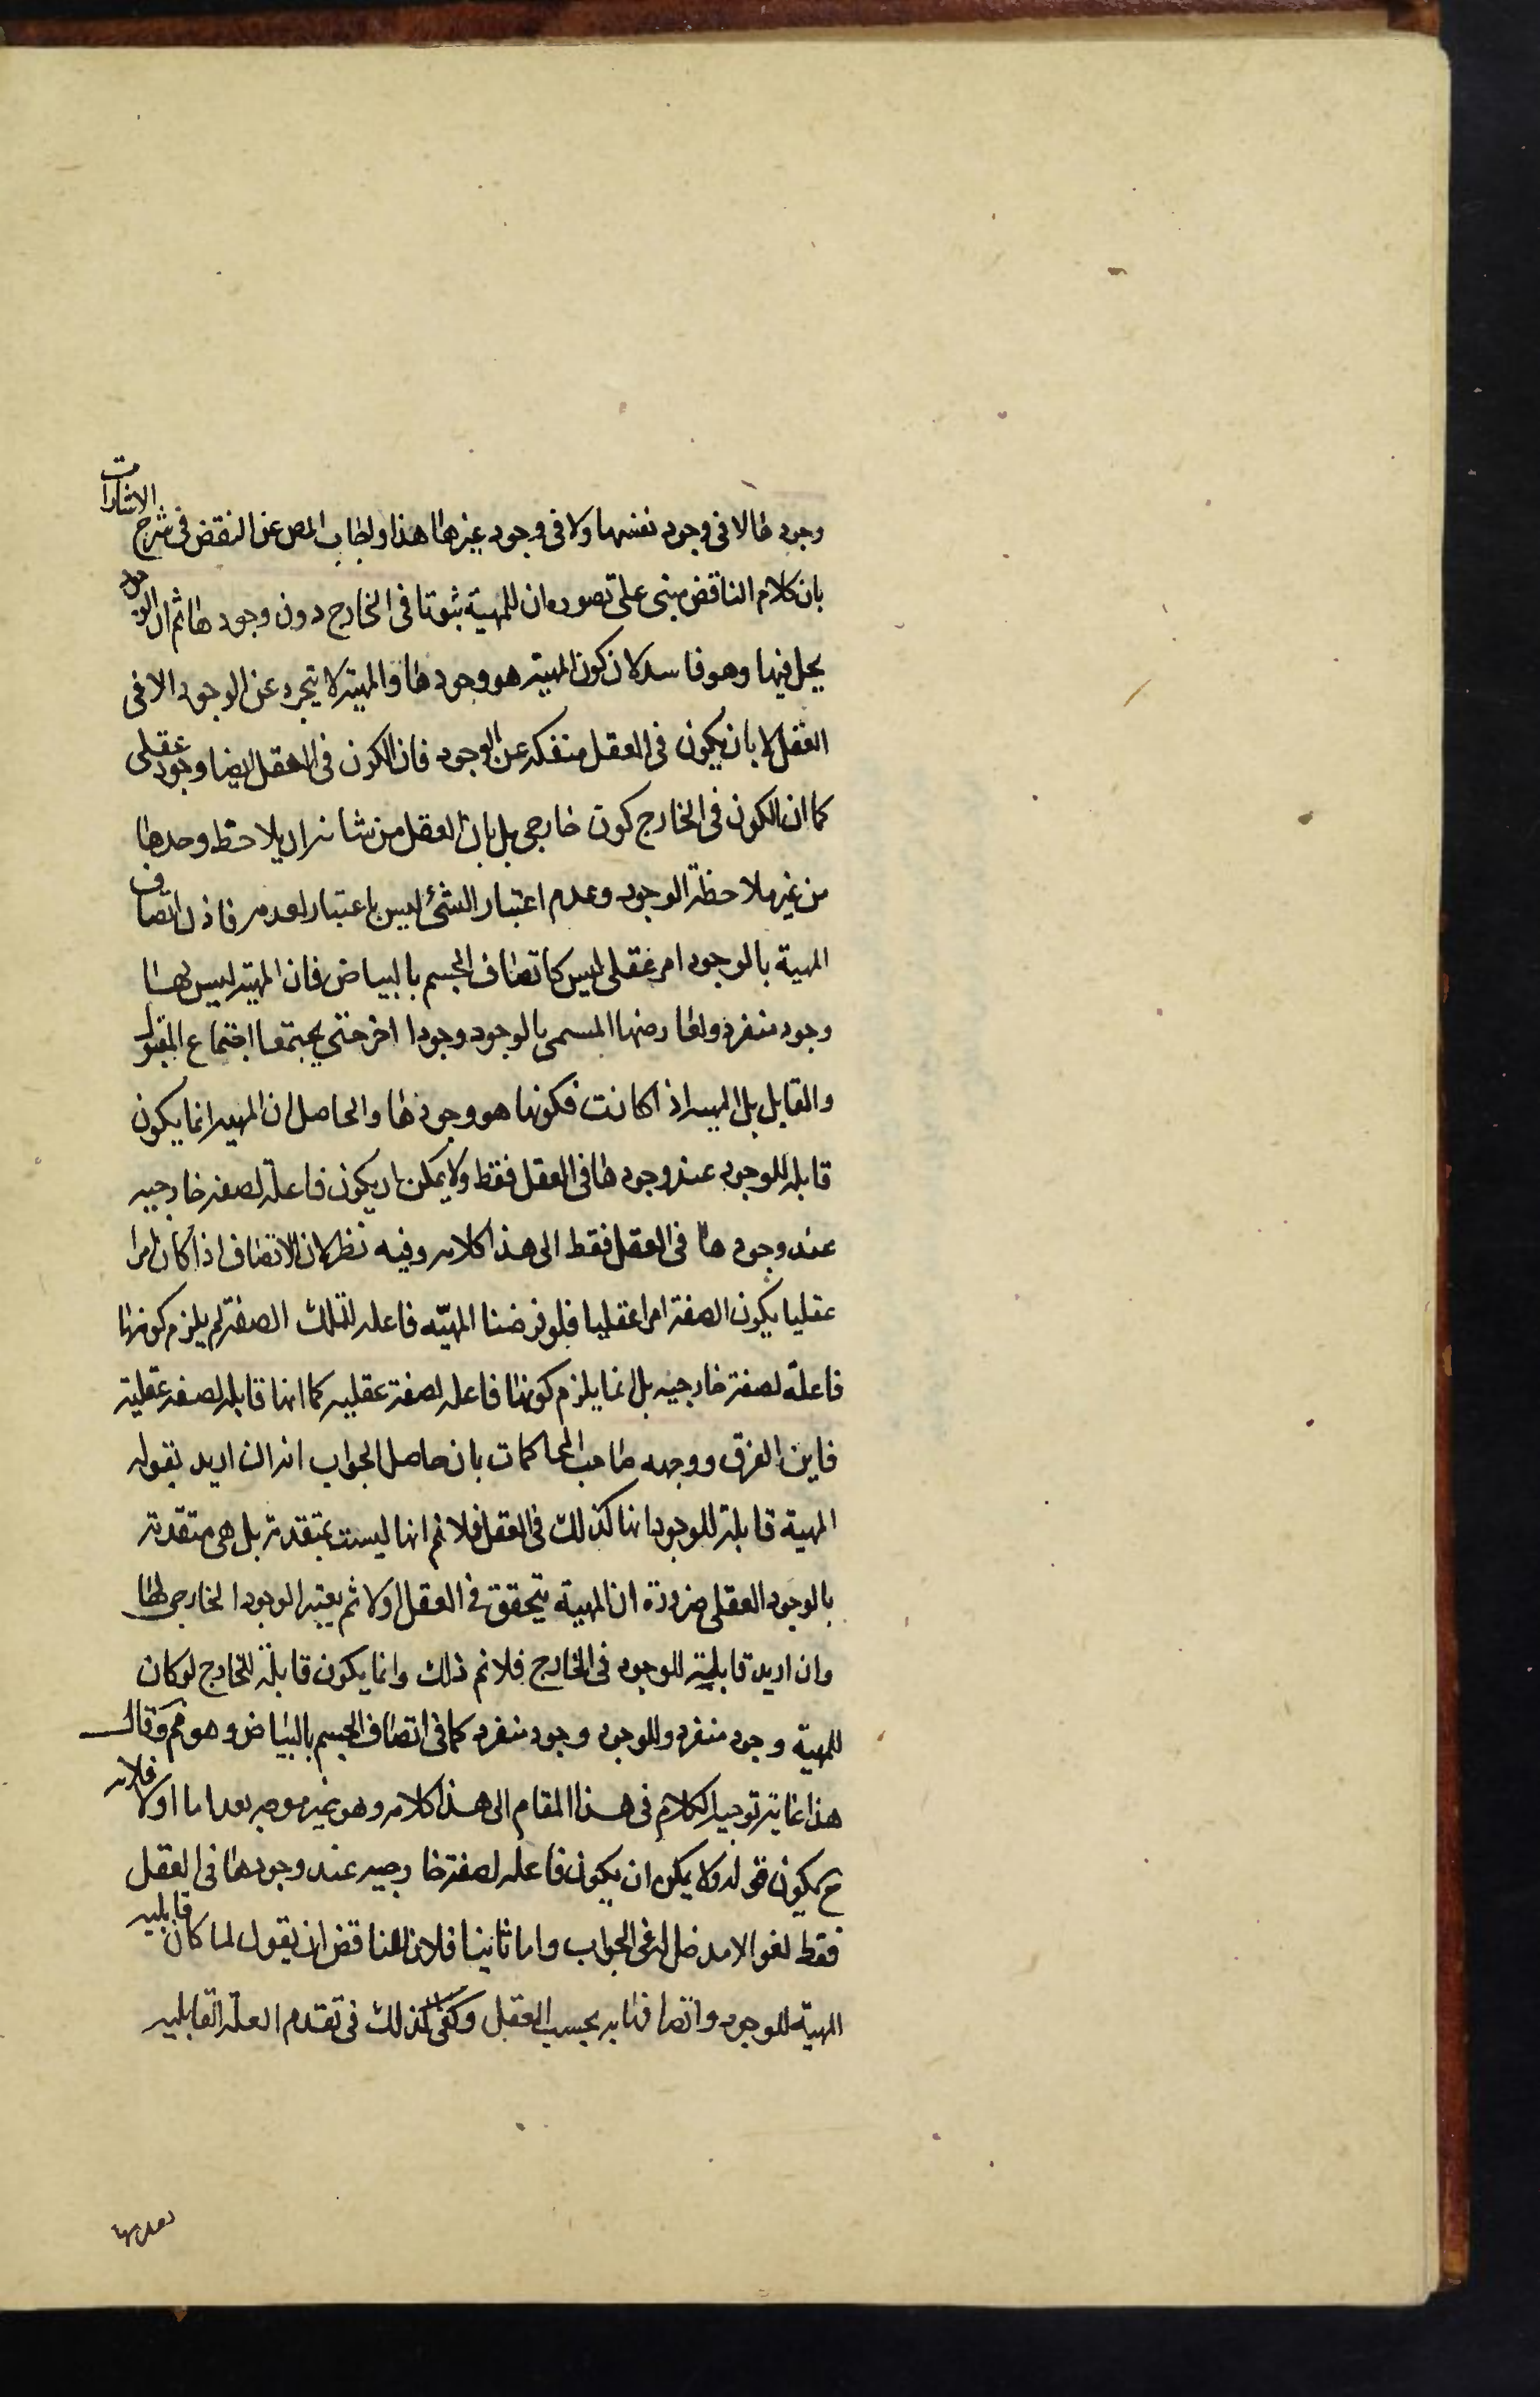 وجودها لا فى وجود نفسها ولا فى وجود غيرها هذا واجاب المص عن النقض فى شرح الاشارات
بان كلام الناقض مبنى على تصوره ان للمهية ثبوتا فى الخارج دون وجودها ثم ان الوجود
يحل فيها وهو فاسد لان كون المهية هو وجودها والمهية لا يتجرد عن الوجود الا فى
العقل لا بان يكون فى العقل منفكه عن الوجود فان الكون فى العقل ايضا وجود عقلى
كما ان الكون فى الخارج كون خارجى بل بان العقل من شانه ان يلاحظ وحدها
من غير ملاحظة الوجود وعدم اعتبار الشئ ليس باعتبار لعدمه فاذن اتصاف
المهية بالوجود امر عقلى ليس كاتصاف الجسم بالبياض فان المهية ليس لها
وجود منفرد ولعارضها المسمى بالوجود وجودا اخر حتى يجتمعا اجتماع المقبول
والقابل بل المهيه اذا كانت فكونها هو وجودها والحاصل ان المهيه انما يكون
قابله للوجود عند وجودها فى العقل فقط ولا يمكن ان يكون فاعلة لصفه خارجيه
عند وجودها فى العقل فقط الى هذا كلامه وفيه نظر لان الاتصاف اذا كان امرا
عقليا يكون الصفة امرا عقليا فلو فرضنا المهيّه فاعله لتلك الصفة لم يلزم كونها
فاعلة لصفة خارجيه بل انما يلزم كونها فاعله لصفة عقليه كما انها قابله لصفه عقلية
فاين الفرق ووجهه صاحب المحاكمات بان حاصل الجواب انه ان اريد بقوله
المهية قابلة للوجود انها كذلك فى العقل فلا نم انها ليست بمتقدمة بل هى متقدمة
بالوجود العقلى ضرورة ان المهية يتحقق فى العقل اولا ثم يعتبر الوجود الخارجى لها
وان اريد قابلية للوجود فى الخارج فلا نم ذلك وانما يكون قابلة للخارج لو كان
للمهية وجود منفرد وللوجود وجود منفرد كما فى اتصاف الجسم بالبياض وهو مم وقال
هذا غاية توجيه الكلام فى هذا المقام الى هذا كلامه وهو غير موجه بعد اما اولا فلانه
ح يكون قوله ولا يمكن ان يكون فاعله لصفة خارجيه عند وجودها فى العقل
فقط لغوا لا مدخل له فى الجواب واما ثانيا فلان للناقض ان يقول لما كان قابليه
المهية للوجود واتصافها به بحسب العقل وكفى كذلك فى تقدم العلة القابليه